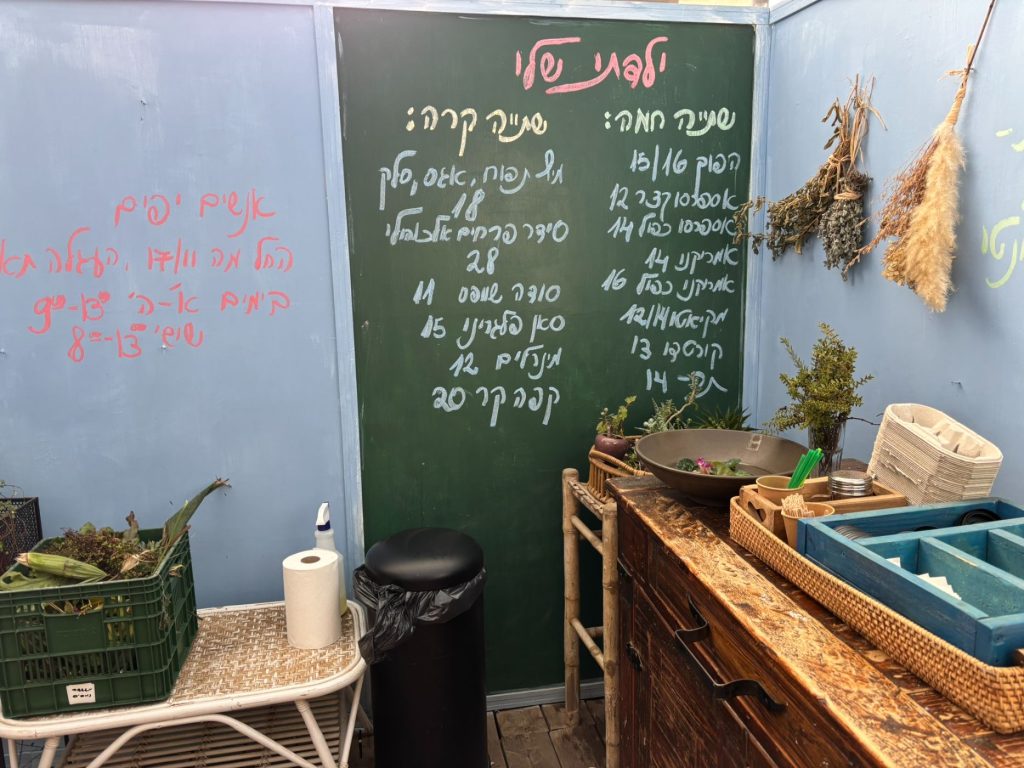 ילדתי שלי
שתייה חמה:
הפוך 15/16
אספרסו קצר 12
אספרסו כפול 14
אמריקנו 14
אמריקנו כפול 16
מקיאטו 12/14
קורטדו 13
תה - 14
שתייה קרה:
מיץ תפוח, אגס, סלק
18
סידר פרחים אלכוהולי
28
סודה שוופס 11
סאן פלגרינו 15
מינרלים 12
קפה קר 20
אנשים יפים
החל מה 17/11, העגלה
בימים א'-ה' 9:00-13:00
שישי 8:00-13:00